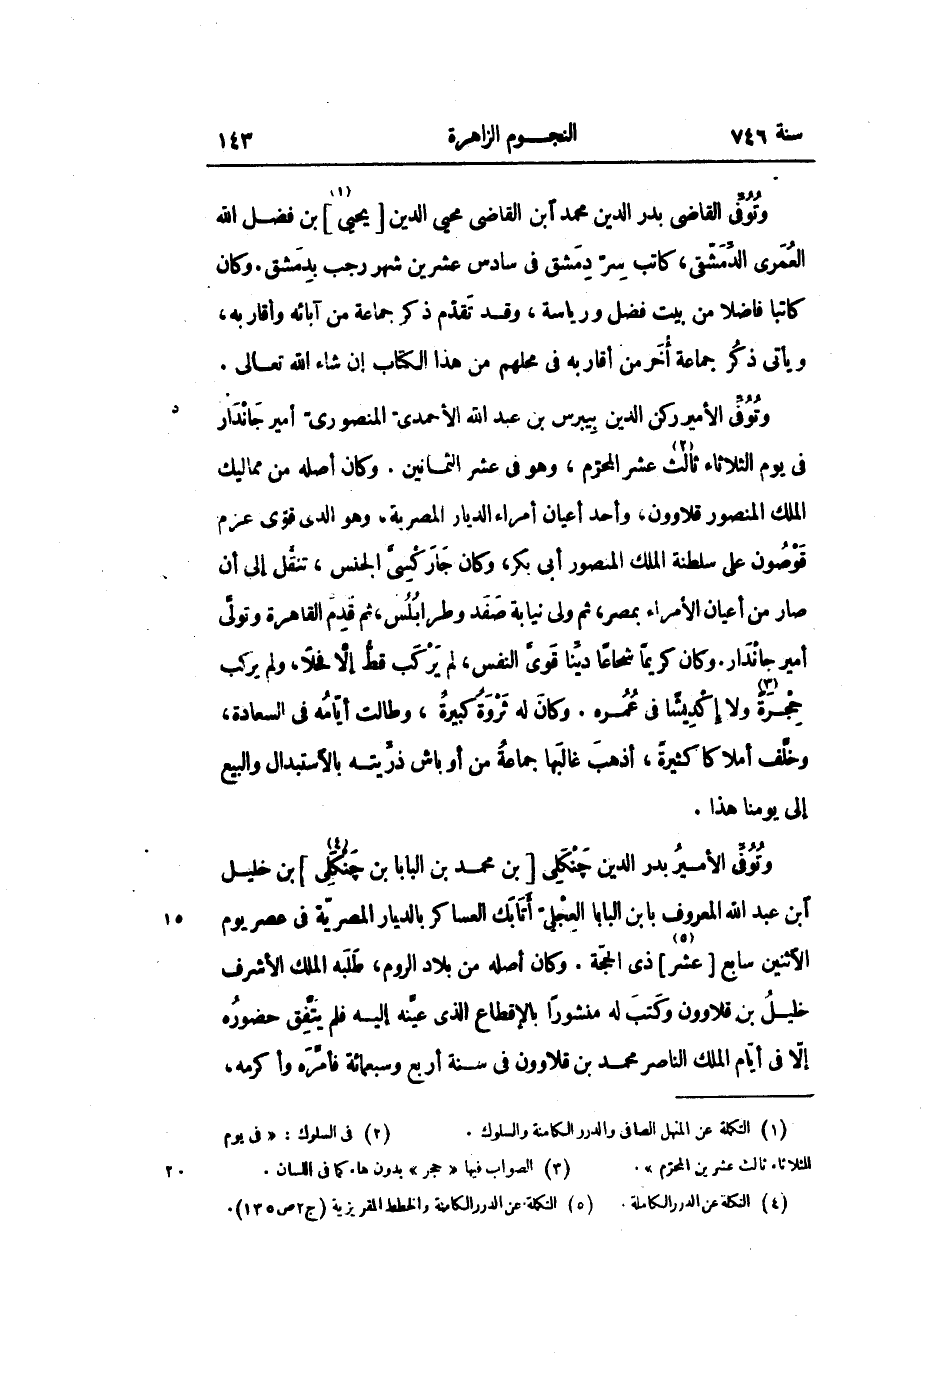 سنة ٧٤٦ النجوم الزاهرة ١٤٣
وتُوُفِّى القاضى بدر الدين محمد آبن القاضى محيى الدين [يحيى (١)] بن فضل الله
العُمَرى الدِّمَشْقى، كاتب سِرّ دِمَشق فى سادس عشرين شهر رجب بدِمَشق. وكان
كاتبا فاضلا من بيت فضل ورياسة، وقد تَقدّم ذكر جماعة من آبائه وأقاربه،
ويأتى ذكُر جماعة أُخَر من أقاربه فى محلهم من هذا الكتاب إن شاء الله تعالى.
وتُوُفِّى الأمير ركن الدين بِيبرس بن عبد الله الأحمدىّ المنصورىّ أمير جَانْدَار ٥
فى يوم الثلاثاء ثالث (٢) عشر المحرّم، وهو فى عشر الثمانين. وكان أصله من مماليك
الملك المنصور قلاوون، وأحد أعيان أمراء الديار المصرية. وهو الذى قوّى عزم
قَوْصُون على سلطنة الملك المنصور أبى بكر، وكان جَارَكْسِىَّ الجنس، تنقَّل إلى أن
صار من أعيان الأمراء بمصر، ثم ولى نيابة صَفَد وطرابُلُس، ثم قَدِم القاهرة وتولَّى
أمير جانْدَار. وكان كريمًا شجاعًا ديِّنا قَوِىَّ النفس، لم يَرْكَب قطُّ إلّا فحلًا، ولم يركب
حِجْرَةً (٣) ولا إكْدِيشًا فى عُمُره. وكانَ له ثَرْوَةٌ كبيرةٌ، وطالت أيّامُه فى السعادة،
وخلَّف أملاكا كثيرةً، أذهبَ غالبَها جماعةٌ من أوباش ذرِّيته بالآستبدال والبيع
إلى يومنا هذا.
وتُوُفِّى الأميرُ بدر الدين جَنْكَلِى [بن محمد بن البابا بن جَنْكَلِى (٤)] بن خليل
آبن عبد الله المعروف بابن البابا العِجْلِىّ أَتَابَك العساكر بالديار المصريّة فى عصر يوم ١٥
الآثنين سابع [عشر (٥)] ذى الحجّة. وكان أصله من بلاد الروم، طَلَبه الملك الأشرف
خليلُ بن قلاوون وكَتبَ له منشورًا بالإقطاع الذى عيَّنه إليه فلم يَتَّفِق حضورُه
إلّا فى أيّام الملك الناصر محمد بن قلاوون فى سنة أربع وسبعمائة فأمَّرَه وأكرمه،
(١) التكملة عن المنهل الصافى والدرر الكامنة والسلوك. (٢) فى السلوك: «فى يوم
الثلاثاء ثالث عشرين المحرّم». (٣) الصواب فيها «حجر» بدون هاء، كما فى اللسان. ٢٠
(٤) التكملة عن الدرر الكاملة. (٥) التكملة عن الدرر الكامنة والخطط المقريزية (ج ٢ ص ١٣٥).